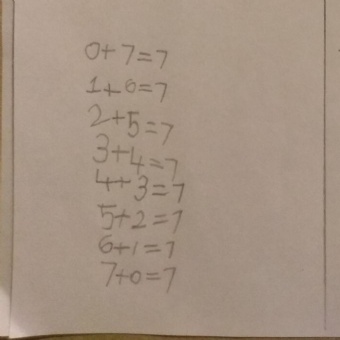 0+7=7
1+6=7
2+5=7
3+4=7
4+3=7
5+2=7
6+1=7
7+0=7